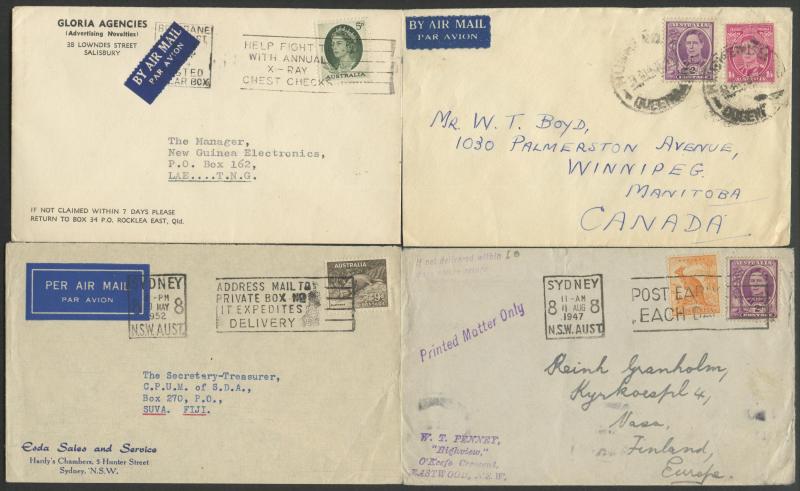 GLORIA AGENCIES
(Advertising Novelties)
38 LOWNDES STREET
SALISBURY
BY AIR MAIL
PAR AVION
HELP FIGHT T
WITH ANNUAL
X-RAY
CHEST CHECK
5D
AUSTRALIA
The Manager,
New Guinea Electronics,
P.O. Box 162,
LAE....T.N.G.
IF NOT CLAIMED WITHIN 7 DAYS PLEASE
RETURN TO BOX 34 P.O. ROCKLEA EAST, Qld.
BY AIR MAIL
PAR AVION
AUSTRALIA
MR. W. T. BOYD,
1030 PALMERSTON AVENUE,
WINNIPEG.
MANITOBA
CANADA
PER AIR MAIL
PAR AVION
SYDNEY
-PM
MAY
8 8
1952
N.S.W. AUST
ADDRESS MAIL TO
PRIVATE BOX NO
IT EXPEDITES
DELIVERY
AUSTRALIA
9D
The Secretary-Treasurer,
C.P.U.M. of S.D.A.,
Box 270, P.O.,
SUVA. FIJI.
Esda Sales and Service
Hardy's Chambers, 5 Hunter Street
Sydney, N.S.W.
If not delivered within 10
Printed Matter Only
SYDNEY
11-AM
8 11 AUG 8
1947
N.S.W. AUST
POST EAR
EACH
Reinh Granholm,
Kyrkoespl 4,
Vasa.
Finland,
Europe.
W. T. PENNEY,
"Highview,"
O'Keefe Crescent,
EASTWOOD, N.S.W.